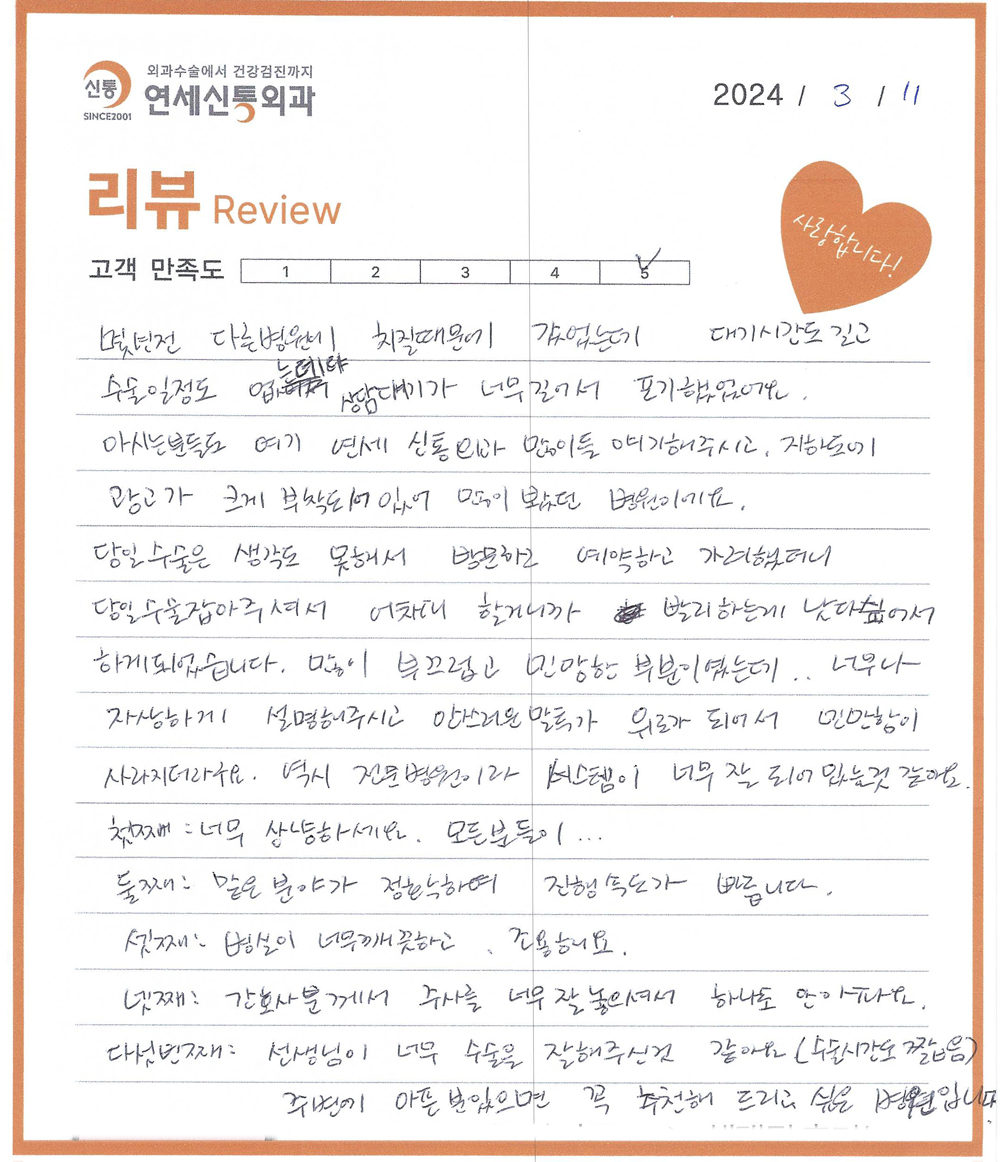 외과수술에서 건강검진까지
신통
연세신통외과
SINCE2001
2024 / 3 / 11
리뷰 Review
사랑합니다!
고객 만족도 1 2 3 4 5
몇년전 다른병원에 치질때문에 갔었는데 대기시간도 길고
수술일정도 없는데다 상담대기가 너무길어서 포기했었어요.
아시는분들도 여기 연세 신통외과 많이들 얘기해주시고, 지하도에
광고가 크게 부착되어 있어 많이 보았던 병원이에요.
당일수술은 생각도 못해서 방문하고 예약하고 가려했더니
당일수술잡아주셔서 어차피 할거니까 빨리하는게 낫다싶어서
하게되었습니다. 많이 부끄럽고 민망한 부분이였는데.. 너무나
자상하게 설명해주시고 안쓰러운말투가 위로가 되어서 민망함이
사라지더라구요. 역시 전문병원이라 시스템이 너무 잘 되어 있는것 같아요.
첫째 : 너무 상냥하세요. 모든분들이...
둘째: 맡은 분야가 정확하며 진행속도가 빠릅니다.
셋째: 병실이 너무깨끗하고, 조용해요.
넷째: 간호사분께서 주사를 너무잘놓으셔서 하나도 안아파요.
다섯번째: 선생님이 너무 수술을 잘해주신것 같아요 (수술시간도 짧음)
주변에 아픈분있으면 꼭 추천해 드리고 싶은 병원입니다